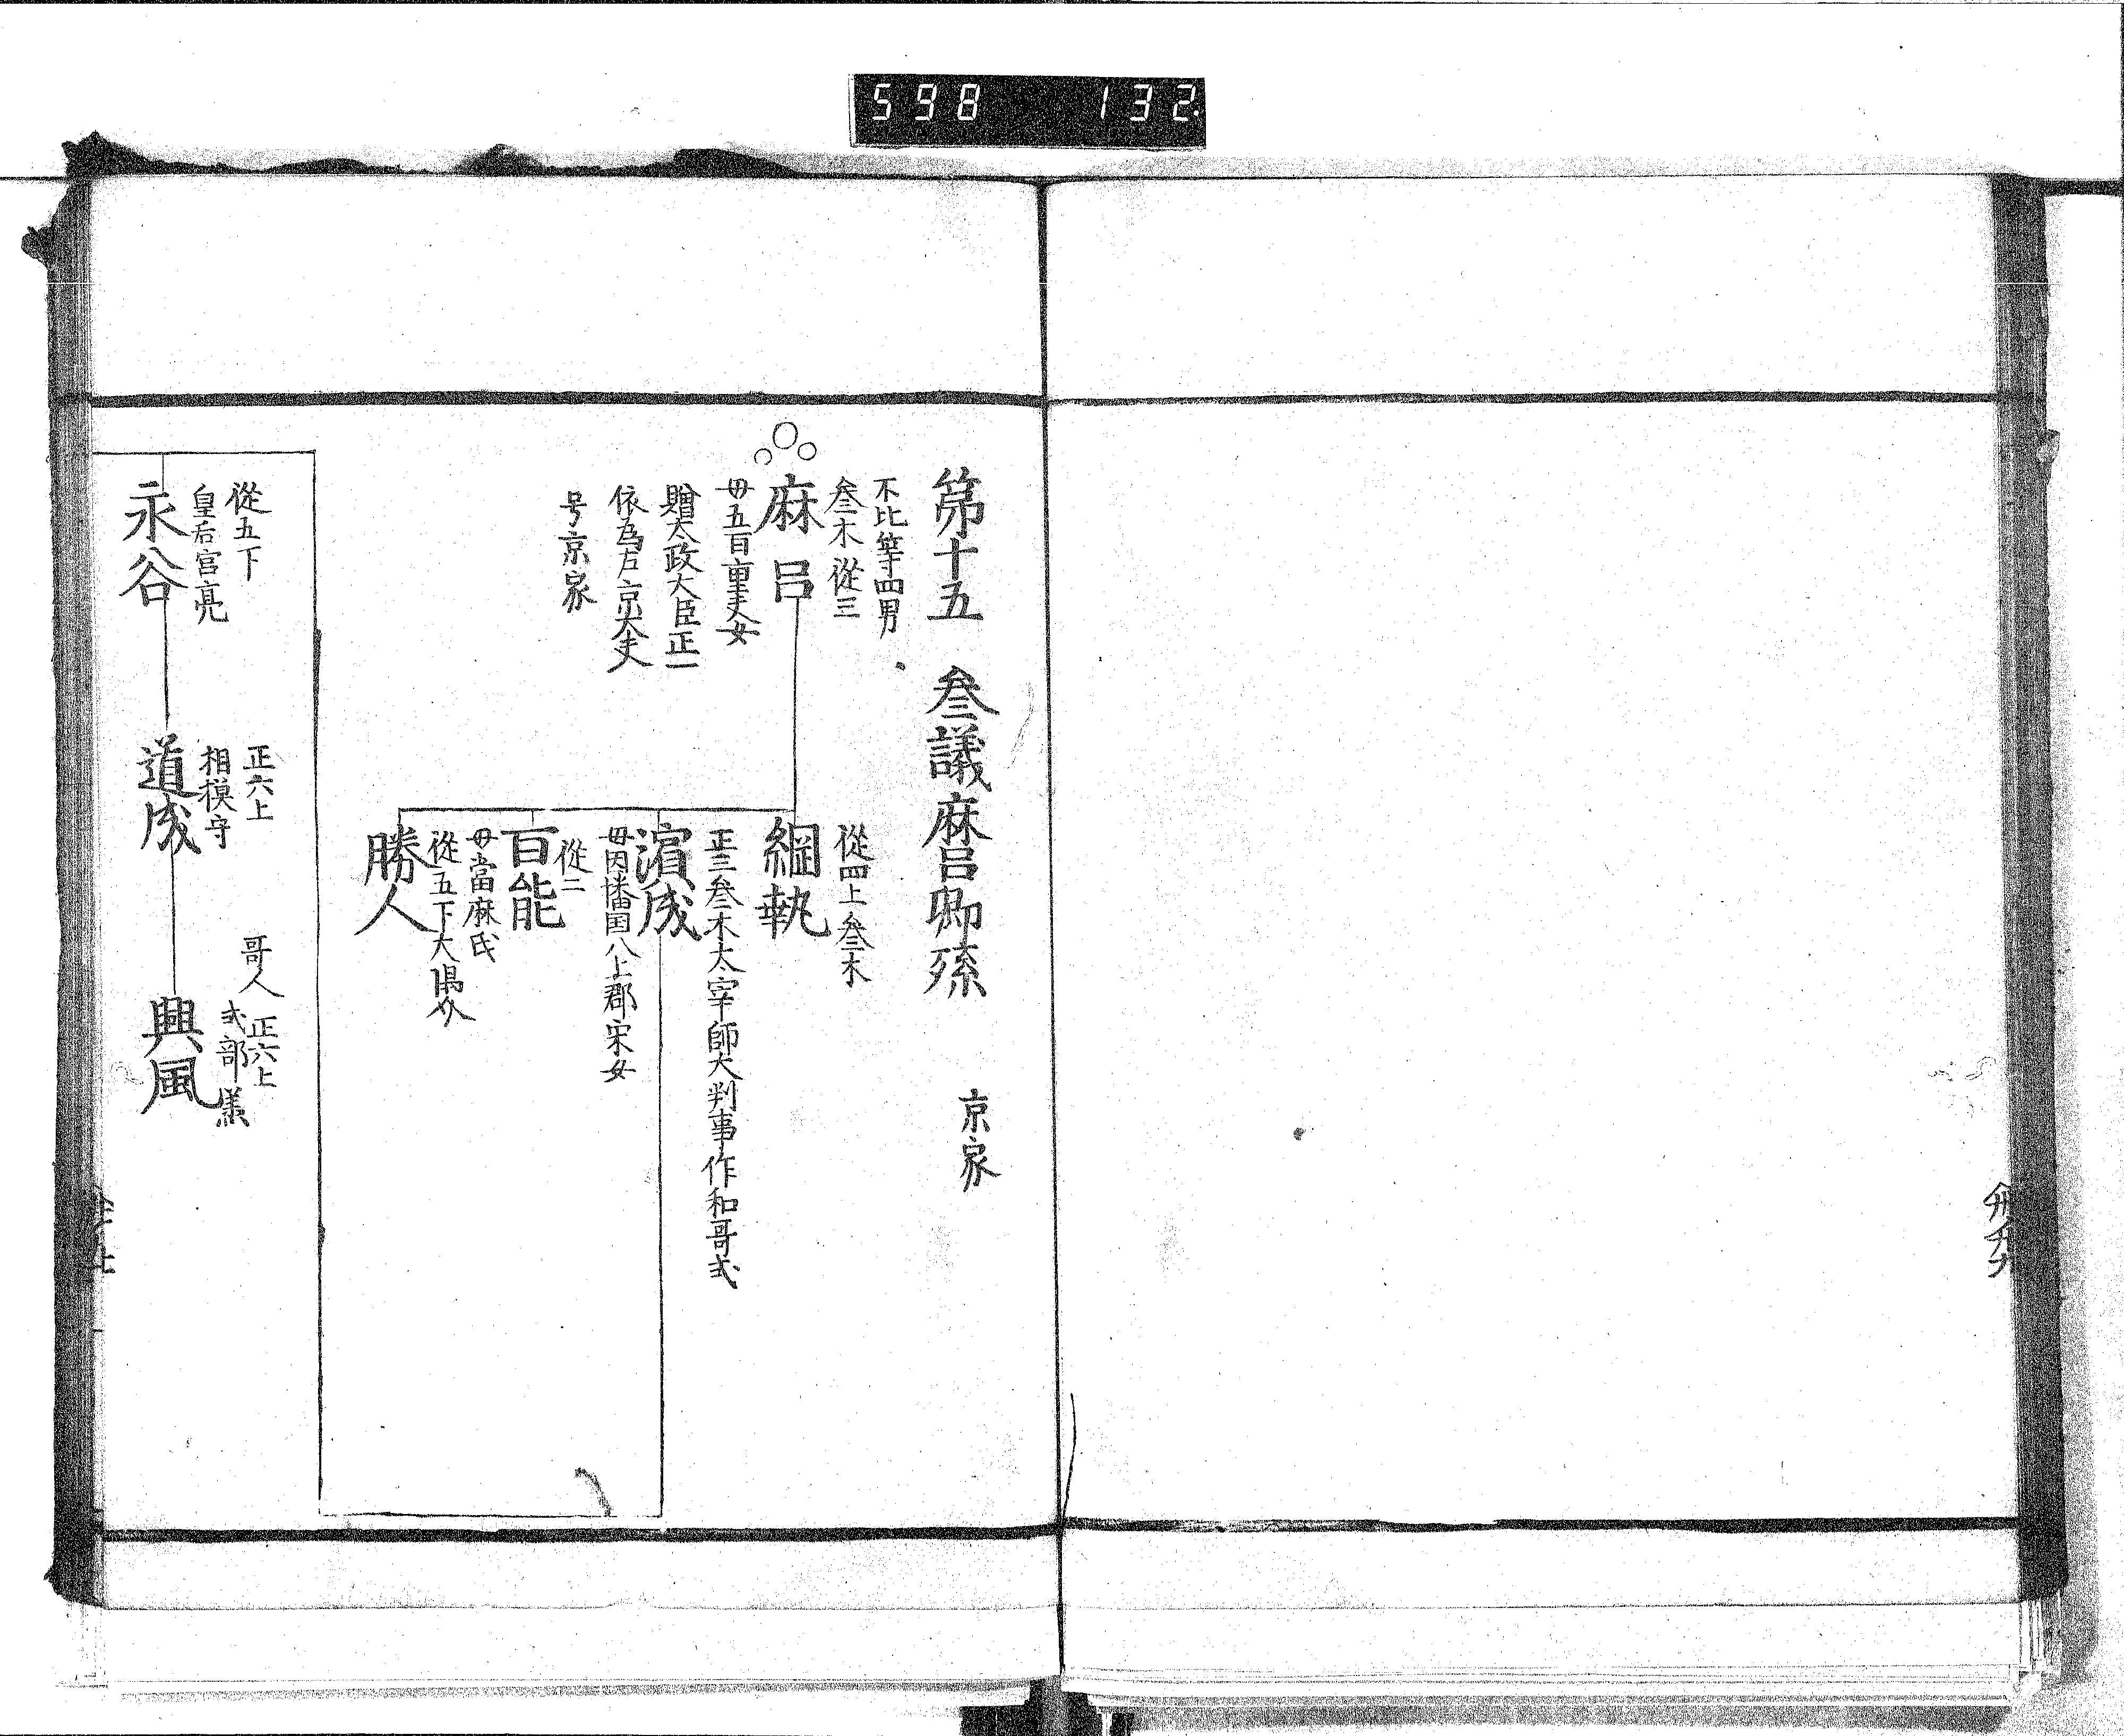 598 132
第十五 叄議麻呂卿孫 京家
不比等四男
叄木從三
麻呂
母五百重夫女
贈太政大臣正一
依爲左京大夫
号京家
從四上叄木
綱執
正三叄木太宰師大判事作和哥式
濵成
母因幡国八上郡宋女
從二
百能
母當麻氏
從五下大隅介
勝人
從五下
皇后宮亮
永谷
正六上
相摸守
道成
哥人 正六上
式部
興風